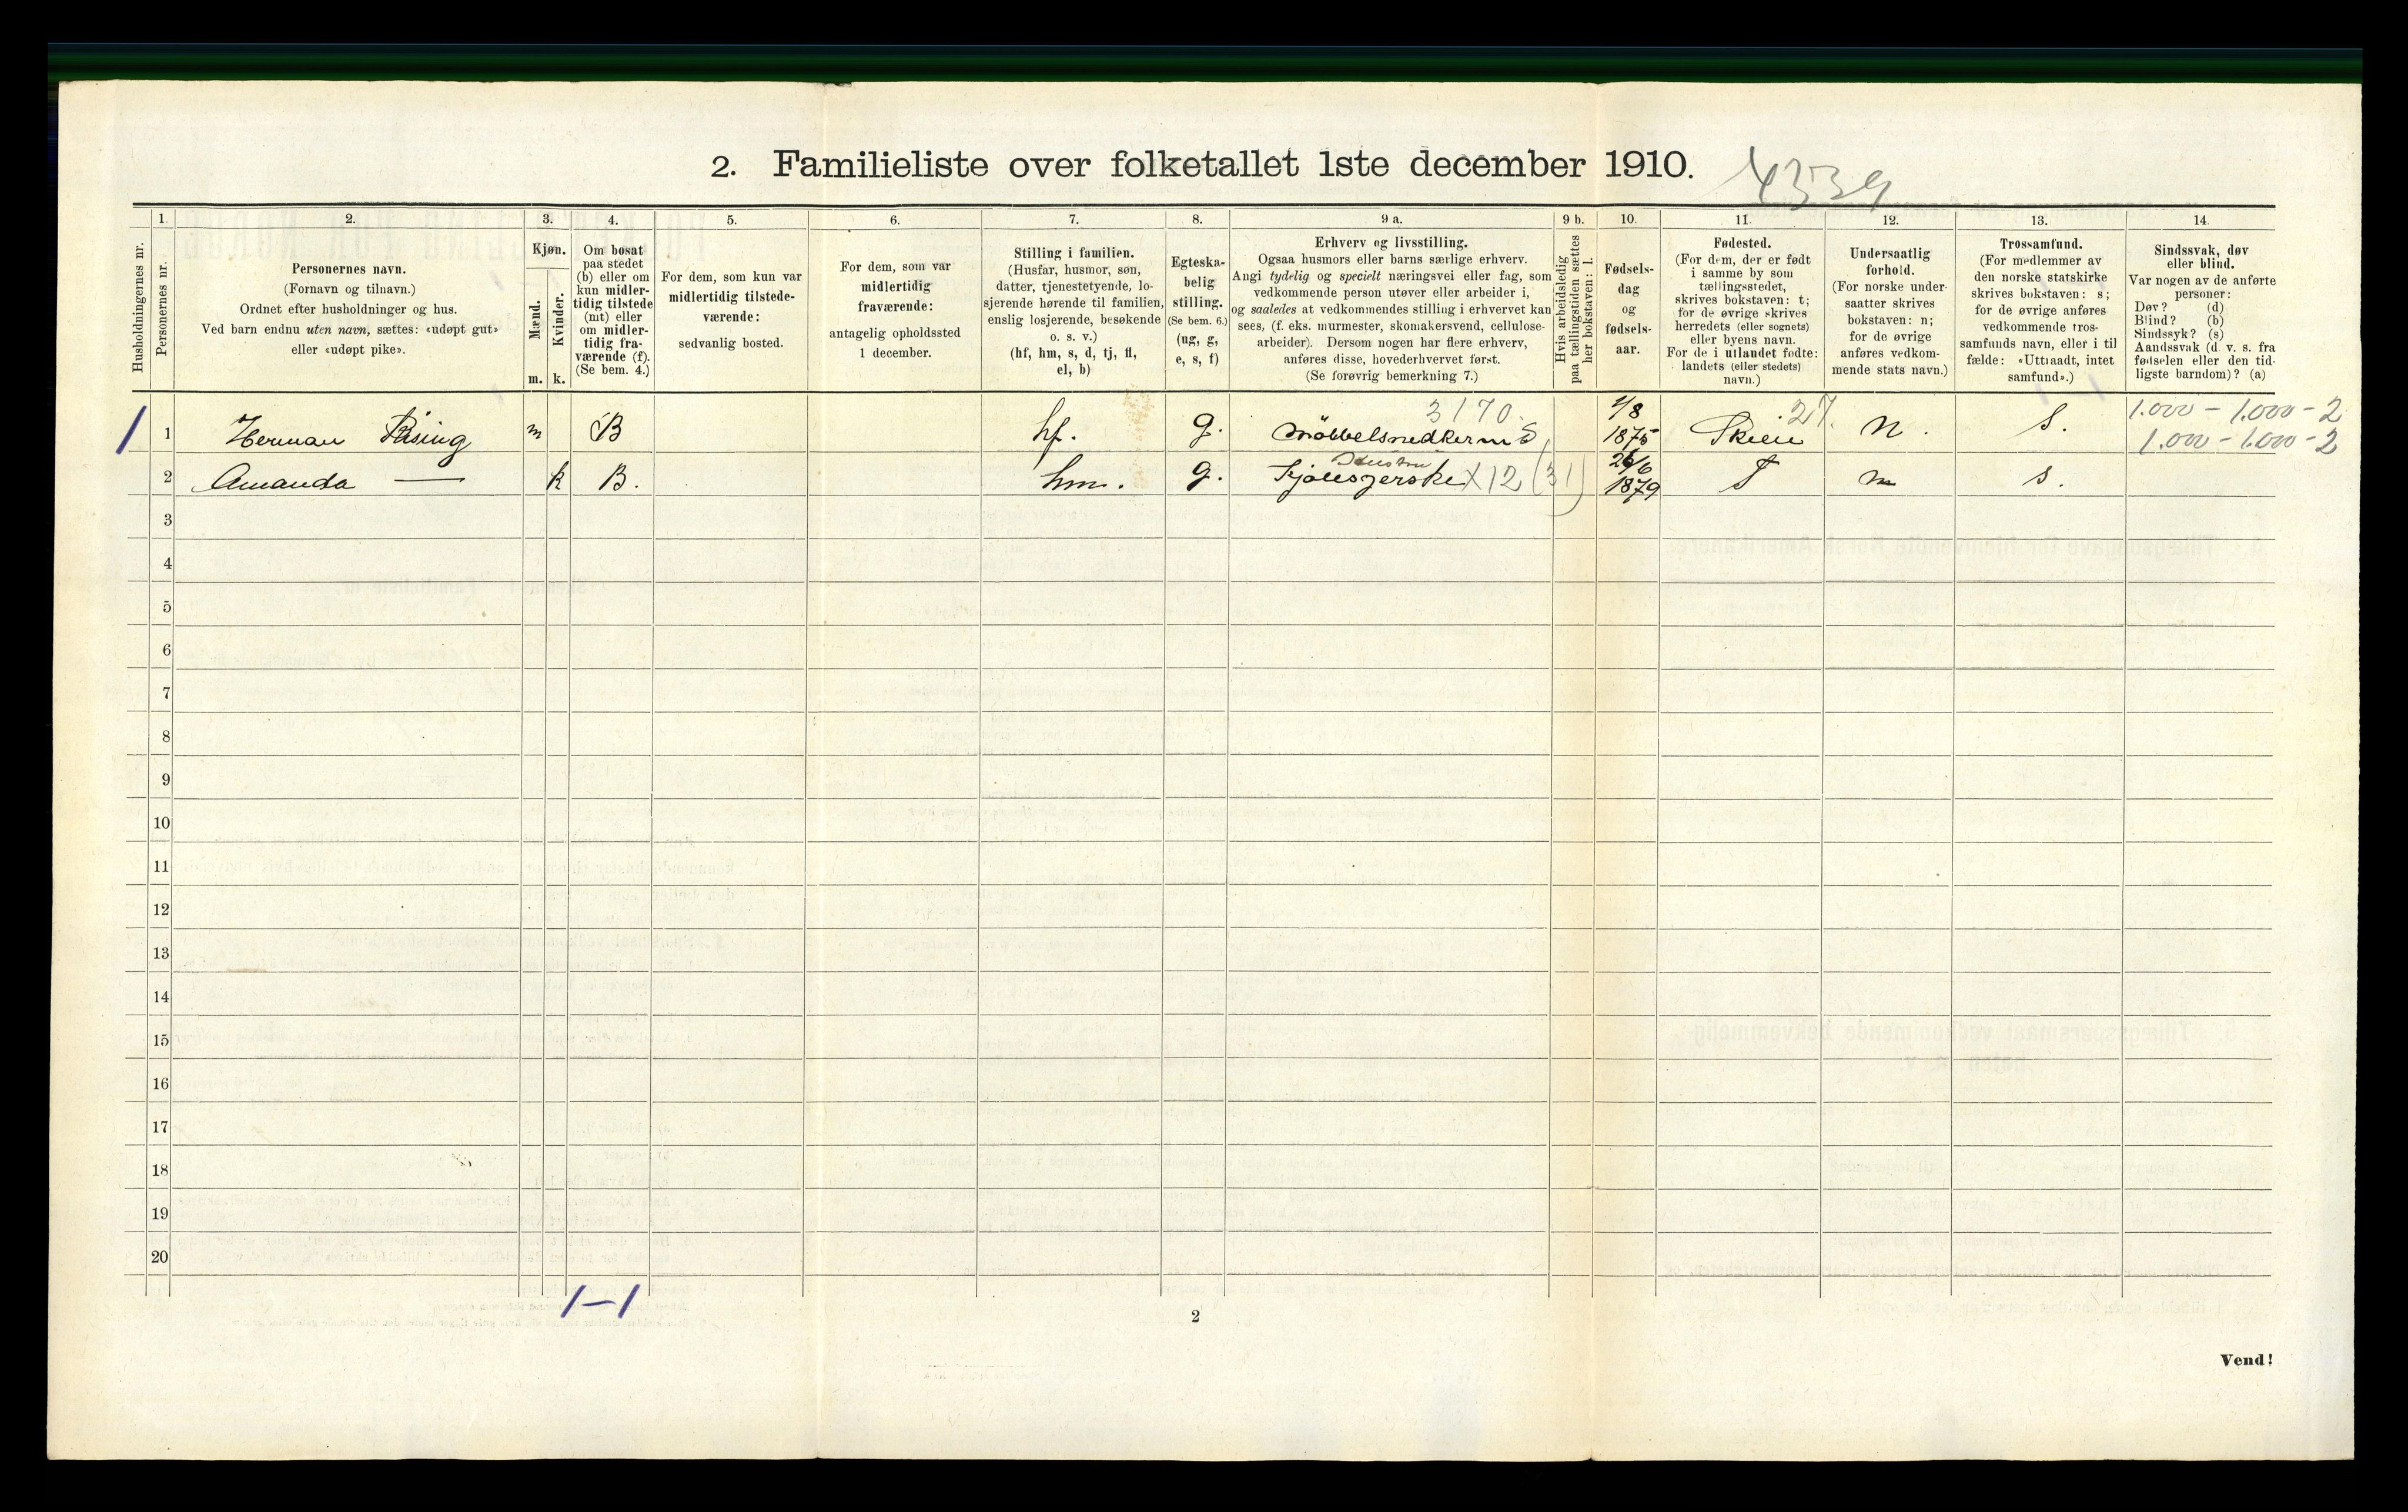 2. Familieliste over folketallet 1ste december 1910.
4339
Husholdningernes nr.
1.
Personernes nr.
2.
Personernes navn.
(Fornavn og tilnavn.)
Ordnet efter husholdninger og hus.
Ved barn endnu uten navn, sættes: «udøpt gut»
eller «udøpt pike».
3.
Kjøn.
Mænd.
Kvinder.
m. k.
4.
Om bosat
paa stedet
(b) eller om
kun midler-
tidig tilstede
(mt) eller
om midler-
tidig fra-
værende (f).
(Se bem. 4.)
5.
For dem, som kun var
midlertidig tilstede-
værende:
sedvanlig bosted.
6.
For dem, som var
midlertidig
fraværende:
antagelig opholdssted
1 december.
7.
Stilling i familien.
(Husfar, husmor, søn,
datter, tjenestetyende, lo-
sjerende hørende til familien,
enslig losjerende, besøkende
o. s. v.)
(hf, hm, s, d, tj, fl,
el, b)
8.
Egteska-
belig
stilling.
(Se bem. 6.)
(ug, g,
e, s, f)
9 a.
Erhverv og livsstilling.
Ogsaa husmors eller barns særlige erhverv.
Angi tydelig og specielt næringsvei eller fag, som
vedkommende person utøver eller arbeider i,
og saaledes at vedkommendes stilling i erhvervet kan
sees, (f. eks. murmester, skomakersvend, cellulose-
arbeider). Dersom nogen har flere erhverv,
anføres disse, hovederhvervet først.
(Se forøvrig bemerkning 7.)
9 b.
Hvis arbeidsledig
paa tællingstiden sættes
her bokstaven: l.
10.
Fødsels-
dag
og
fødsels-
aar.
11.
Fødested.
(For dem, der er født
i samme by som
tællingsstedet,
skrives bokstaven: t;
for de øvrige skrives
herredets (eller sognets)
eller byens navn.
For de i utlandet fødte:
landets (eller stedets)
navn.)
12.
Undersaatlig
forhold.
(For norske under-
saatter skrives
bokstaven: n;
for de øvrige
anføres vedkom-
mende stats navn.)
13.
Trossamfund.
(For medlemmer av
den norske statskirke
skrives bokstaven: s;
for de øvrige anføres
vedkommende tros-
samfunds navn, eller i til
fælde: «Uttraadt, intet
samfund».)
14.
Sindssvak, døv
eller blind.
Var nogen av de anførte
personer:
Døv? (d)
Blind? (b)
Sindssyk? (s)
Aandssvak (d. v. s. fra
fødselen eller den tid-
ligste barndom)? (a)
3170. 27. 1.000 - 1.000 - 2
1 1 Herman m B hf. g. 1/8 1875 Skien n. s. 1.000 - 1.000 - 2
2 Amanda — k B. hm. g. Kjolesyerske X12 (31) 26/6 1879 T n s.
3
4
5
6
7
8
9
10
11
12
13
14
15
16
17
18
19
20
1-1
2
Vend!